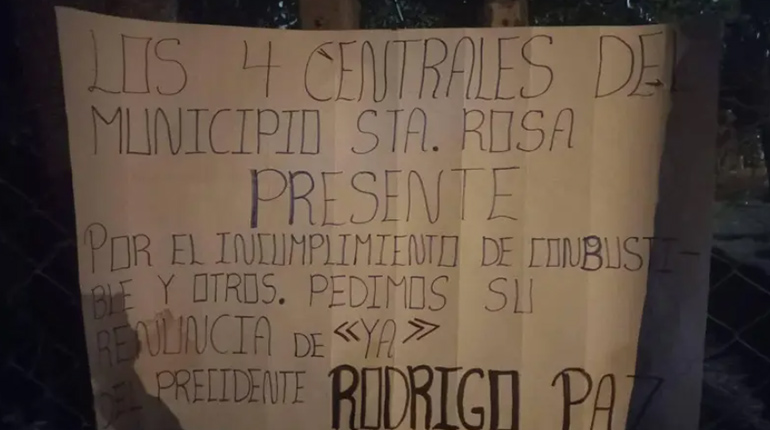 LOS 4 CENTRALES DEL
MUNICIPIO STA. ROSA
PRESENTE
POR EL INCUMPLIMIENTO DE CONBUSTI-
BLE Y OTROS. PEDIMOS SU
RENUNCIA DE «YA»
DEL PRECIDENTE RODRIGO PAZ